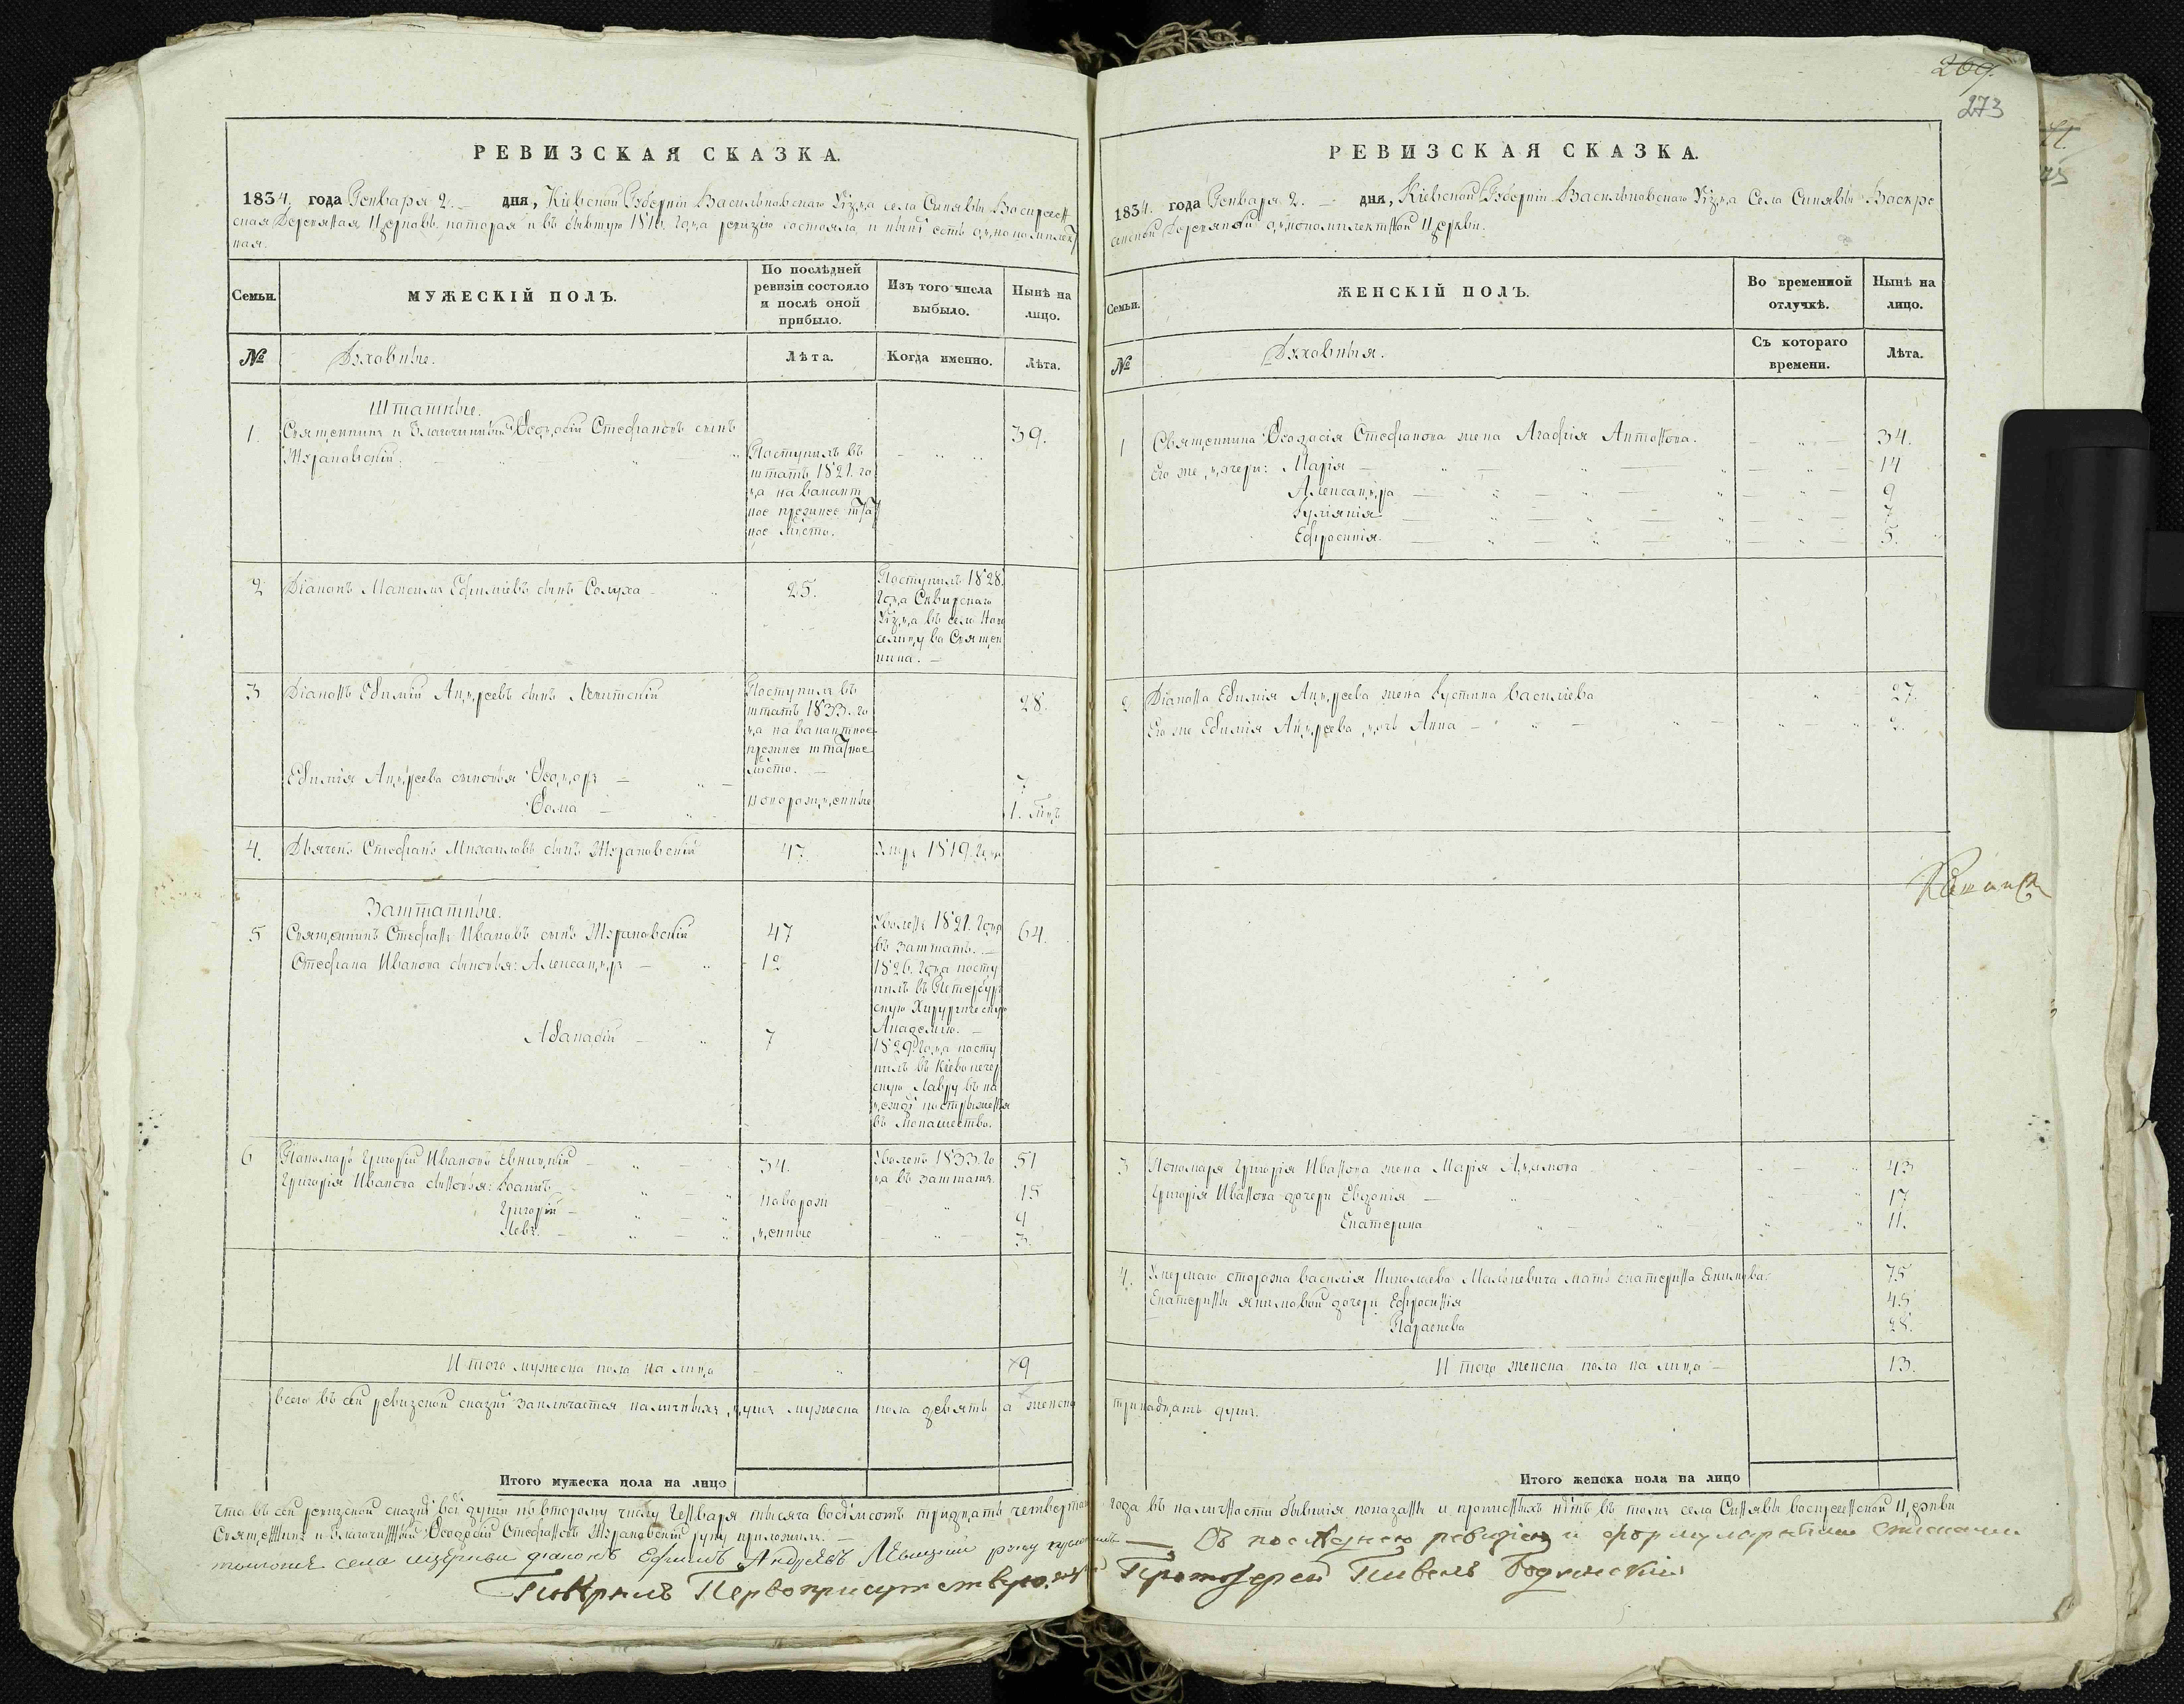 269.
273
РЕВИЗСКАЯ СКАЗКА.
1834. года Генваря 2. дня, Кіевской Губерніи Васильковскаго Уѣзда села Синявы Воскресен
ская Деревянная Церковь, которая и въ бывшую 1816. года ревизію состояла и нынѣ есть однокомплект
ная.
Семьи.
МУЖЕСКІЙ ПОЛЪ.
По послѣдней
ревизіи состояло
и послѣ оной
прибыло.
Изъ того числа
выбыло.
Нынѣ на
лицо.
№
Духовные.
Лѣта.
Когда именно.
Лѣта.
Штатные.
1. Священникъ и Благочинный Ѳеодосій Стефановъ сынъ 39.
Жураковскій.
Поступилъ въ
штатъ 1821. го
да на вакант
ное прежнее штат
ное мѣсто.
2 Діаконъ Максимъ Ефиміевъ сынъ Солуха 25.
Поступилъ 1828.
Года Сквирскаго
Уѣзда въ село Ново
селицу во Священ
ника.
3 Діаконъ Евѳимій Андреевъ сынъ Левитскій 28.
Поступилъ въ
штатъ 1833. го
да на вакантное
прежнее штатное
мѣсто.
Евѳимія Андреева сыновья Ѳеодоръ 7.
Ѳома новорожденные 1. мѣц.
4. Дьячекъ Стефанъ Михаиловъ сынъ Жураковскій 47 Умре 1819. Года
Заштатные.
5 Священникъ Стефанъ Ивановъ сынъ Жураковскій 47 64.
Уволенъ 1821. Года
въ заштатъ.
Стефана Иванова сыновья: Александръ 12
1826. Года посту
пилъ въ Петербург
скую Хирургическую
Академію.
Аѳанасій 7
1829. Года посту
пилъ въ Кіевопечер
скую Лавру въ на
деждѣ постриженія
въ Монашество.
6 Пономарь Григорій Ивановъ Евницкій 34. Уволенъ 1833. го 51
да въ заштатъ.
Григорія Иванова сыновья: Іоаннъ 15
Григорій новорож 9
Левъ денные 3.
Итого мужеска пола на лицо 9
всего въ сей ревизской сказкѣ заключается наличныхъ душъ мужеска пола девять а женска
Итого мужеска пола на лицо
РЕВИЗСКАЯ СКАЗКА.
1834. года Генваря 2. дня, Кіевской Губерніи Васильковскаго Уѣзда Села Синявы Воскре
сенской Деревянной однокомплектной Церкви.
Семьи.
ЖЕНСКІЙ ПОЛЪ.
Во временной
отлучкѣ.
Нынѣ на
лицо.
№
Духовныя.
Съ котораго
времени.
Лѣта.
1 Священника Ѳеодосія Стефанова жена Агафія Антонова. 34.
Его же дочери: Марія 14
Александра 9
Іуліянія 7
Ефросинія. 5.
2 Діакона Евѳимія Андреева жена Іустина Василіева 27.
Его же Евѳимія Андреева дочь Анна 2.
3 Пономаря Григорія Иванова жена Марія Адамова 43
Григорія Иванова дочери Евдокія 17
Екатерина 11.
4. Умершаго сторожа Василія Николаева Мелькевича мать Екатерина Екимова. 75
Екатерины Якимовой дочери Ефросинія 45
Параскева 28.
Итого женска пола на лицо 13.
тринадцать душъ.
Итого женска пола на лицо
Что въ сей ревизской сказкѣ всѣ души по второму числу Генваря тысяча восѣмсотъ тридцать четвертаго года въ наличности бывшія показаны и прописныхъ нѣтъ въ томъ села Синявы воскресенской Церкви
Священникъ и Благочинный Ѳеодосій Стефановъ Жураковскій руку приложилъ.
тогожъ села церкви діаконъ Ефимъ Андреевъ Левицкій руку приложилъ
Съ послѣднею ревизіею и формулярными списками
Повѣрилъ Первоприсутствующій Протоіерей Павелъ